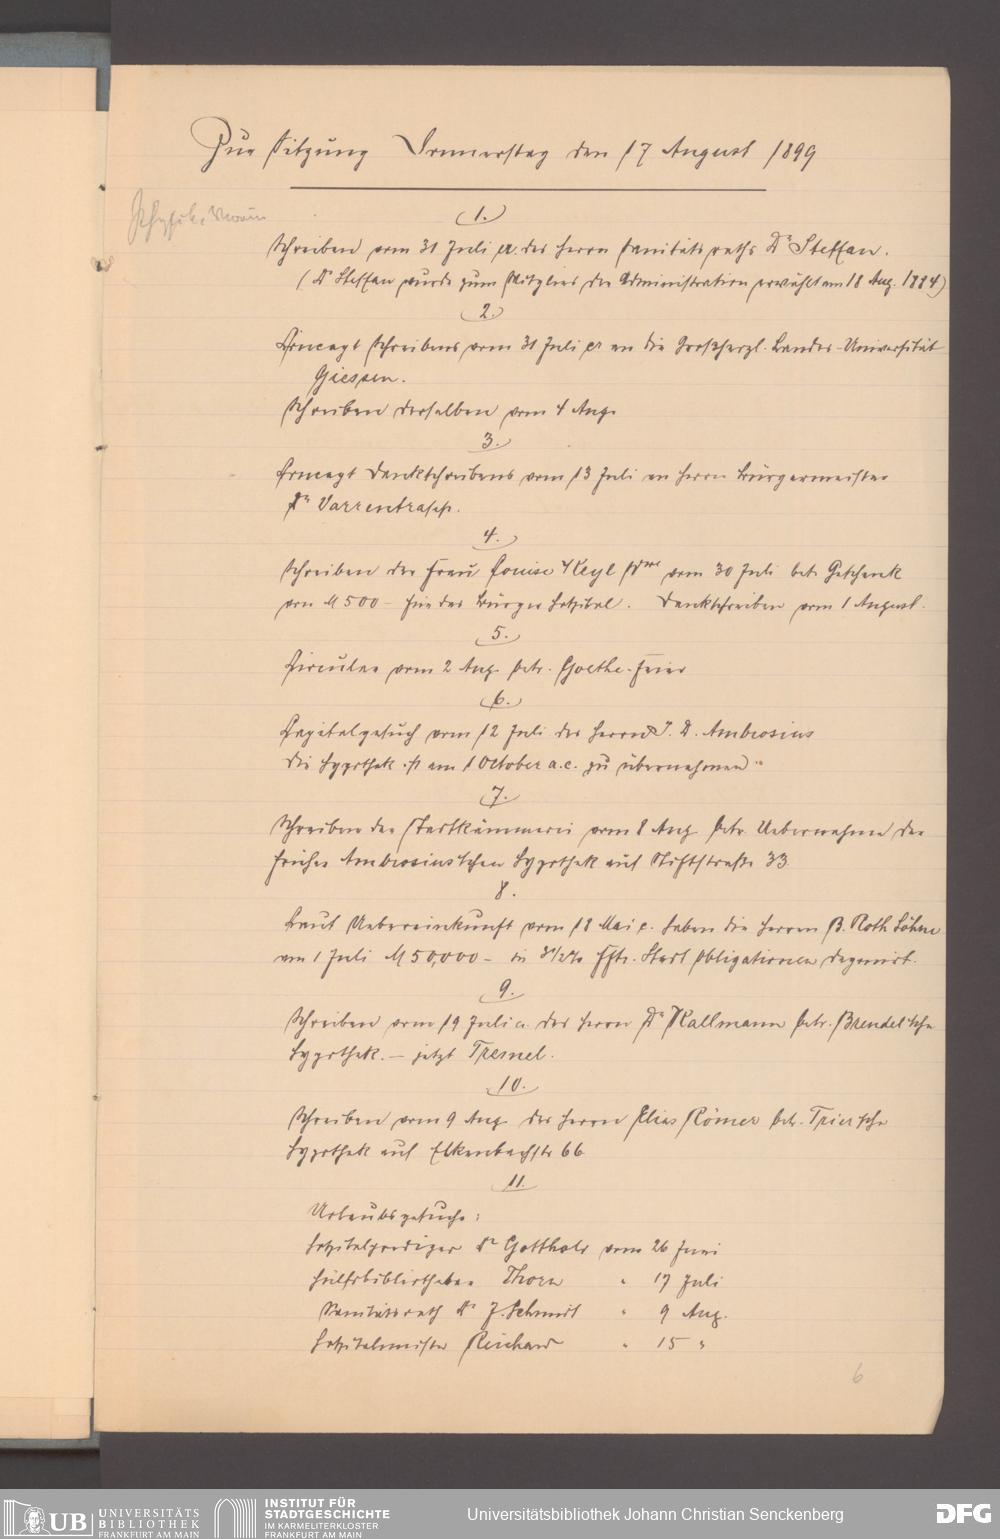 Zur Sitzung Donnerstag den 17 August 1899
Physik. Verein
1.
Schreiben vom 31 Juli cr. des Herrn Sanitätsraths Dr Steffan.
(Dr Steffan wurde zum Mitglied der Administration erwählt am 18 Aug. 1884)
2.
Concept Schreibens vom 31 Juli cr an die Großherzl. Landes-Universität
Giessen.
Schreiben derselben vom 4 Aug.
3.
Concept Dankschreibens vom 13 Juli an Herrn Bürgermeister
Dr Varrentrapp.
4.
Schreiben der Frau Louise Keyl vom 30 Juli betr. Geschenk
von M 500 – für das Bürger Hospital. Dankschreiben vom 1 August.
5.
Circular vom 2 Aug. betr. Goethe-Feier
6.
Capitalgesuch vom 12 Juli des Herrn J. D. Ambrosius
die Hypothek ist am 1 October a.c. zu übernehmen
7.
Schreiben der Stadtkämmerei vom 8 Aug betr. Uebernahme der
früher Ambrosius'schen Hypothek auf Stiftstraße 33
8.
Laut Uebereinkunft vom 18 Mai c. haben die Herren B. Roth Söhne
am 1 Juli M 50,000 – in 3½% Fftr. Stadt Obligationen deponirt.
9.
Schreiben vom 19 Juli c. des Herrn Dr Kallmann betr. Brendel'sche
Hypothek. – jetzt Tresnel.
10.
Schreiben vom 9 Aug des Herrn Elias Römer betr. Trier'sche
Hypothek auf Elkenbachstr 66
11.
Urlaubsgesuche:
Hospitalprediger Dr Gotthold vom 26 Juni
Hülfsbibliothekar Thorn " 17 Juli
Sanitätsrath Dr J. Schmidt " 9 Aug.
Hospitalmeister Reichard " 15 "
6
UB UNIVERSITÄTS
BIBLIOTHEK
FRANKFURT AM MAIN
INSTITUT FÜR
STADTGESCHICHTE
IM KARMELITERKLOSTER
FRANKFURT AM MAIN
Universitätsbibliothek Johann Christian Senckenberg
DFG